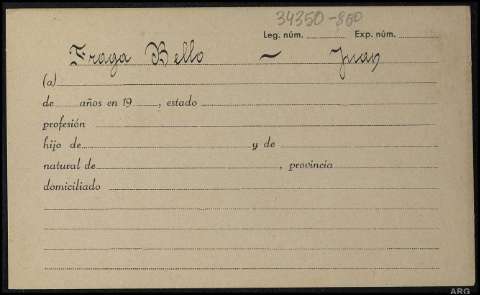 34350-860
Leg. núm. Exp. núm.
Fraga Bello — Juan
(a)
de años en 19 , estado
profesión
hijo de y de
natural de , provincia
domiciliado
ARG